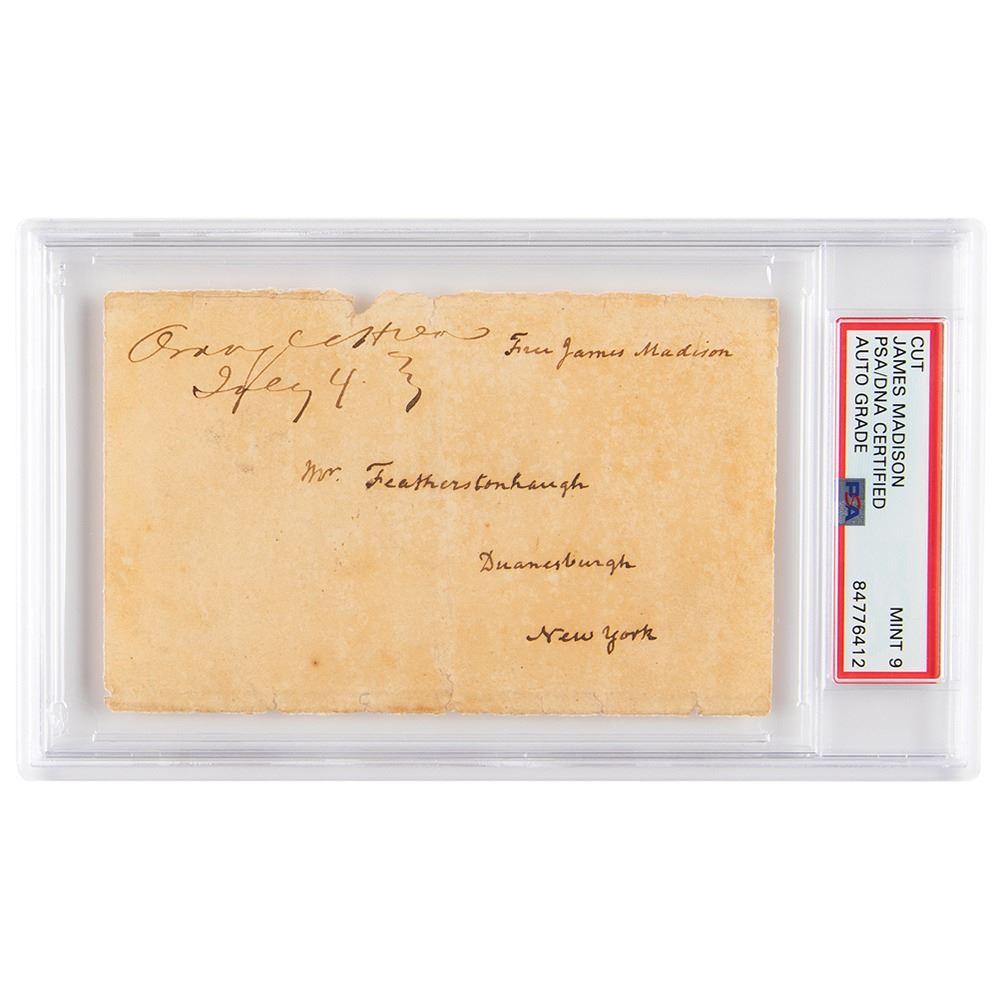 Orange CtHouse
July 4.
Free James Madison
Mr. Featherstonhaugh
Duanesburgh
New York
CUT
JAMES MADISON
PSA/DNA CERTIFIED
AUTO GRADE
PSA
MINT 9
84776412